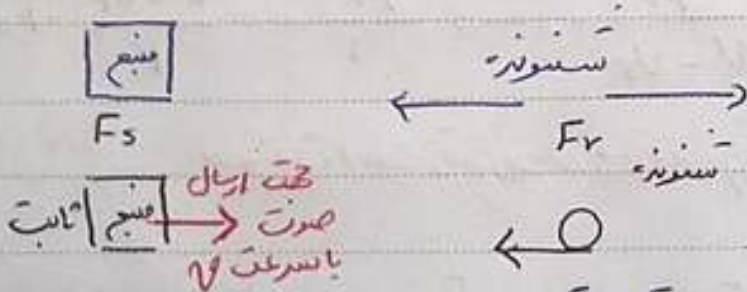 منبع
شنونده
Fs
Fr
شنونده
ثابت
منبع
جهت ارسال
صوت
با سرعت v